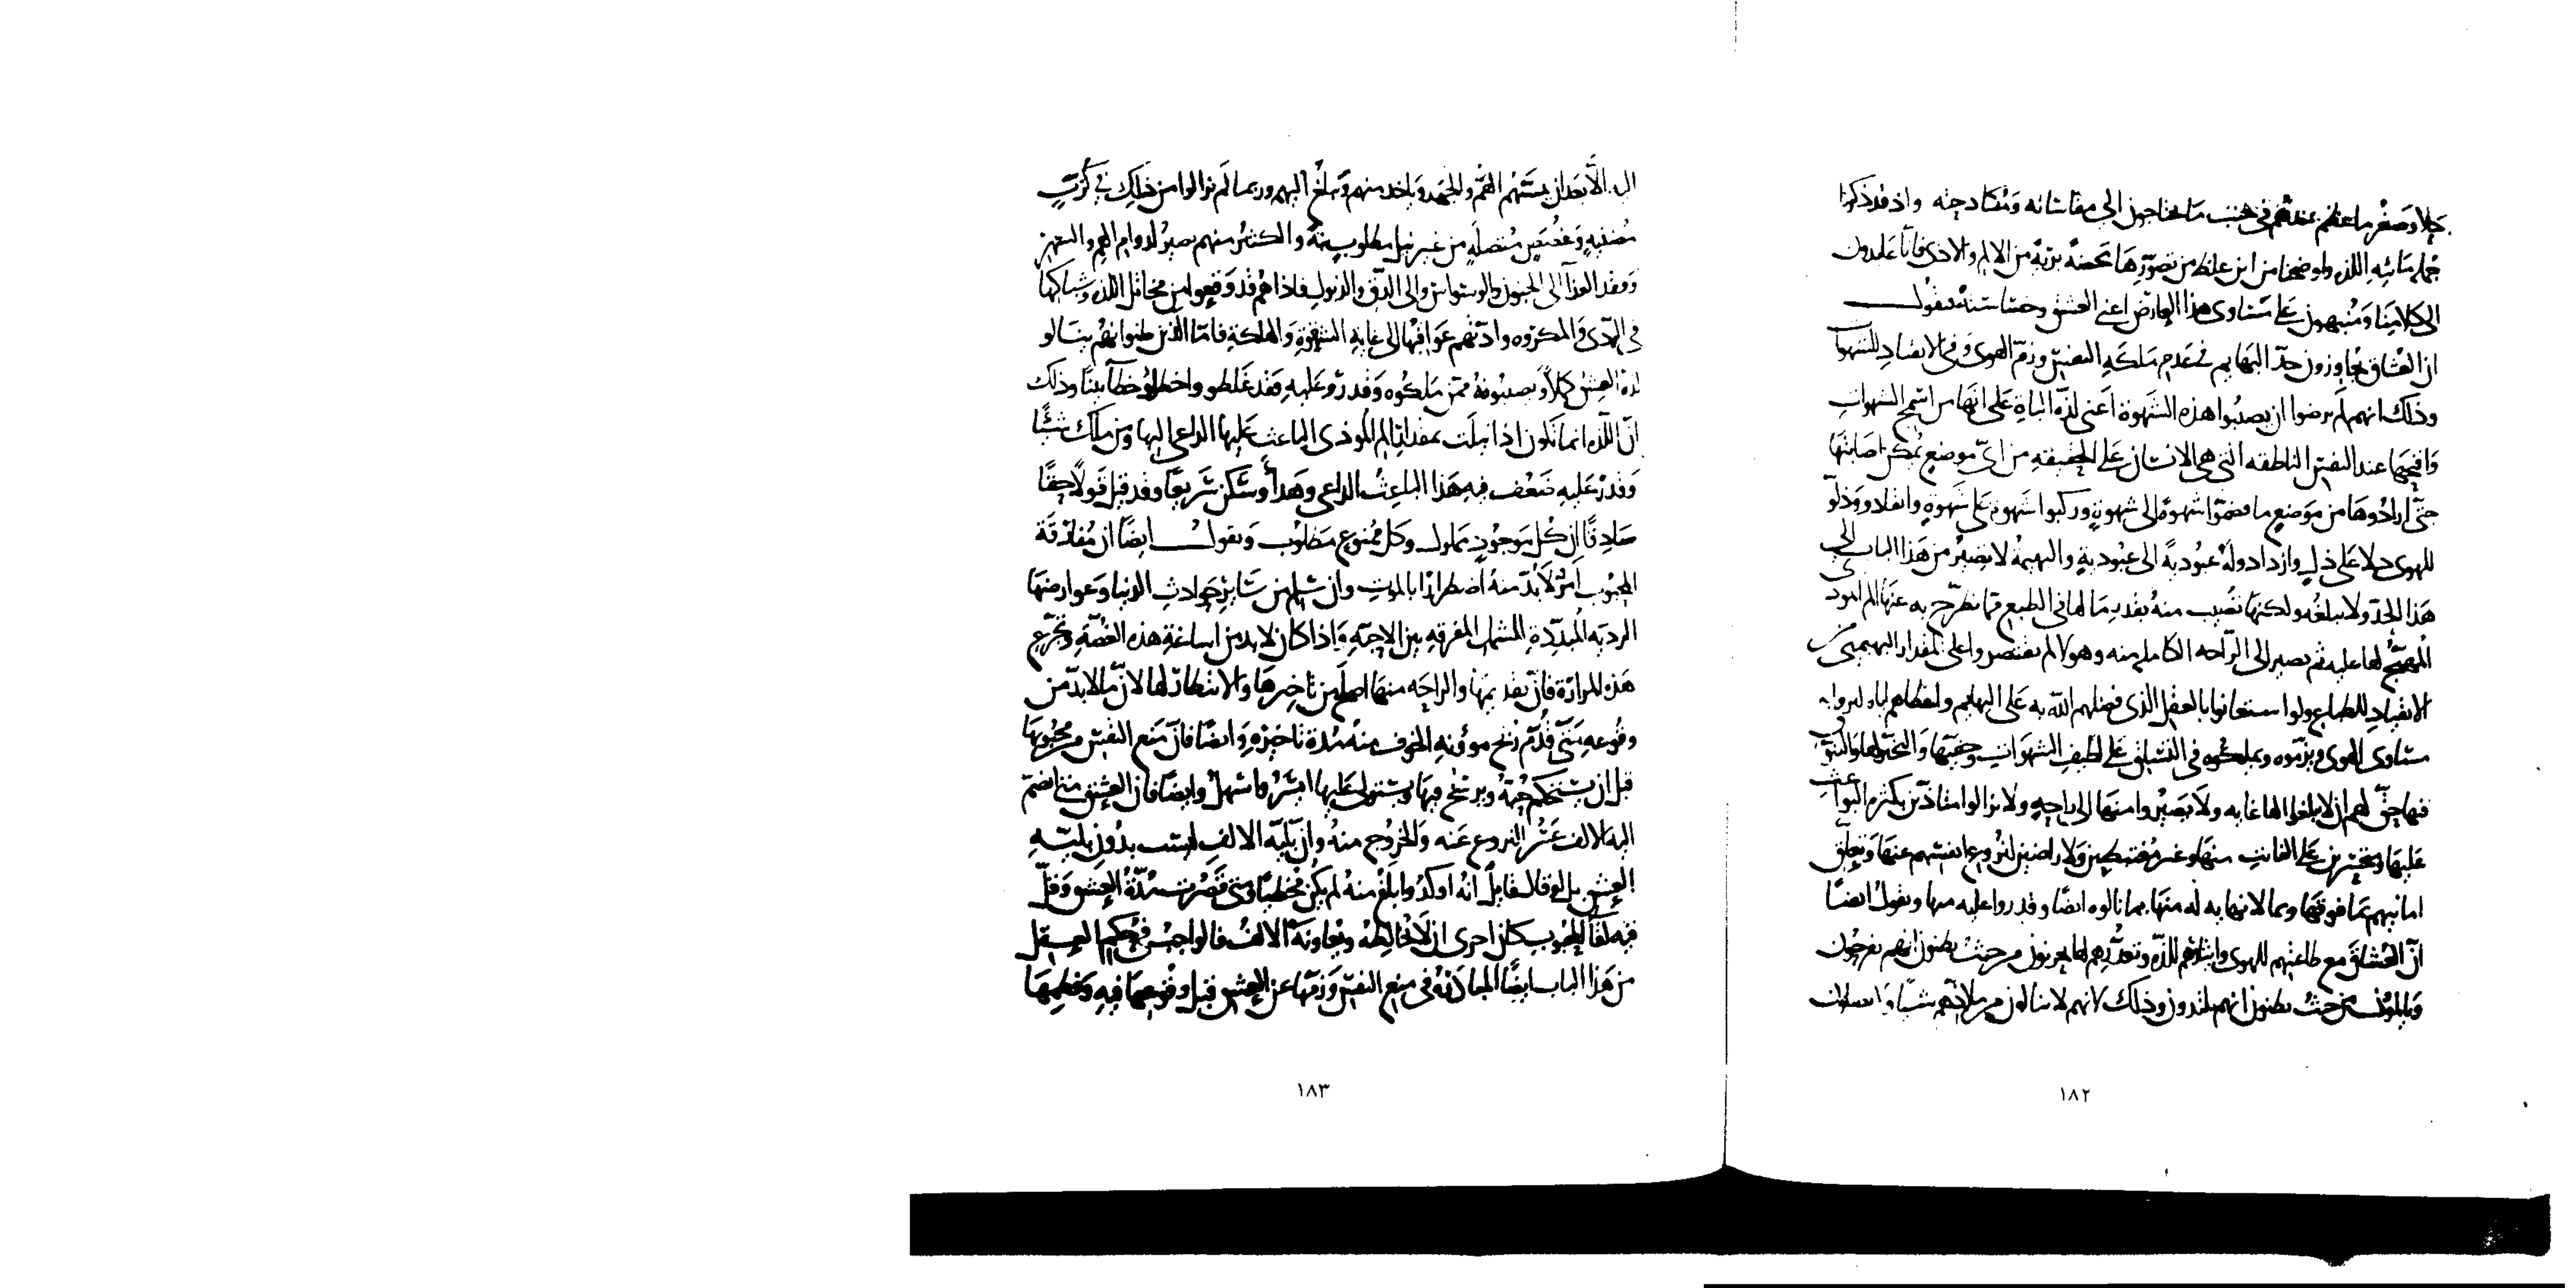 جلا وصغر ما عظم عندهم في جنب ما يحتاجون الى مقاساته ومكادحته واذ قد ذكرنا
جمل مائيه اللذه واوضحنا من اين غلط من تصورها محضة برية من الالم والاذى فانا عايدون
الى كلامنا ومنبهون على مساوى هذا العارض اعنى العشق وخساسته فنقول
ان العشاق يجاوزون حد البهايم في عدم ملكه النفس وزم الهوى وفى الانقياد للشهوات
وذلك انهم لم يرضوا ان يصيبوا هذه الشهوة اعنى لذه الباة على انها من اسمج الشهوات
واقبحها عند النفس الناطقه التى هى الانسان على الحقيقه من اى موضع يمكن اصابتها
حتى ارادوها من موضع ما فضموا شهوة الى شهوة وركبوا شهوة على شهوة وانقادو وذلو
للهوى ذلا على ذل وازدادو له عبودية الى عبودية والبهيمة لا تصير من هذا الباب الى
هذا الحد ولا تبلغه ولكنها تصيب منه بقدر ما لها فى الطبع مما تطرح به عنها الم الموذى
المهيج لها عليه ثم تصير الى الراحه الكامله منه وهولا لم يقتصروا على المقدار البهيمى من
الانقياد للطباع ولوا ستعانوا بالعقل الذى فضلهم الله به على البهايم واعطاهم اياه ليروا به
مساوى الهوى ويزموه ويملكوه فى التسلق على لطيف الشهوات وخفيها والتحير لها والتنوق
فيها حق لهم ان لا يبلغوا الى غايه ولا يصيروا منها الى راحه ولا يزالوا متاذين بكثره البواعث
عليها ومتحسرين على الفايت منها وغير مغتبطين ولا راضين لنزوع انفسهم عنها وتعلق
امانيهم بما فوقها وبما لا نهايه له منها بما نالوه ايضا وقدروا عليه منها ونقول ايضا
ان العشاق مع طاعتهم للهوى وايثارهم للذه وتعبدهم لها يحزنون من حيث يظنون انهم يفرحون
ويالمون من حيث يظنون انهم يلتذون وذلك لانهم لا ينالون من ملاذهم شيا ولا يصلون
اليه الا بعد ان يمسهم الهم والجهد وياخذ منهم ويبلغ اليهم وربما لم يزالوا من ذلك في كرب
منصبه وغصص متصله من غير نيل مطلوب بتة والكثير منهم يصير لدوام الهم والسهر
وفقد الغذآ الى الجنون والوسواس والى الدق والذبول فاذا هم قد وقعوا من حبائل اللذه وشباكها
في الردى والمكروه وادتهم عواقبها الى غايه الشقوة والهلكة فاما الذين ظنوا انهم ينالو
لذه العشق كملا ويصيبونه ممن ملكوه وقدرو عليه فقد غلطو واخطؤ خطآ بينا وذلك
ان اللذه انما تكون اذا نيلت بمقدار الم الموذى الباعث عليها الداعى اليها ومن ملك شيئا
وقدر عليه ضعف فيه هذا الباعث الداعى وهدأ وسكن سريعا وقد قيل قولا حقا
صادقا ان كل موجود مملول وكل ممنوع مطلوب ونقول ايضا ان مفارقة
المحبوب امر لا بد منه اضطرارا بالموت وان سلم من سائر حوادث الدنيا وعوارضها
الرديه المبددة للشمل المفرقه بين الاحبه واذا كان لا بد من اساغة هذه الغصة وتجرع
هذه المرارة فان تقديمها والراحه منها اصلح من تاخيرها والانتظار لها لان ما لا بد من
وقوعه متى قدم ازيح مؤونه الخوف منه مدة تاخيره وايضا فان منع النفس من محبوبها
قبل ان يستحكم حبه ويرسخ فيها ويستولى عليها ايسر واسهل وايضا فان العشق متى انضم
اليه الالف عسر النزوع عنه والخروج منه وان بلية الالف ليست بدون بلية
العشق بل لو قال قايل انه اوكد وابلغ منه لم يكن مخطيا ومتى قصرت مدة العشق وقل
فيه لقآ المحبوب كان احرى ان لا تخالطه وتعاونه الالف فالواجب في حكم العقل
من هذا الباب ايضا المبادرة في منع النفس وزمها عن العشق قبل وقوعها فيه وفطمها
١٨٣
١٨٢